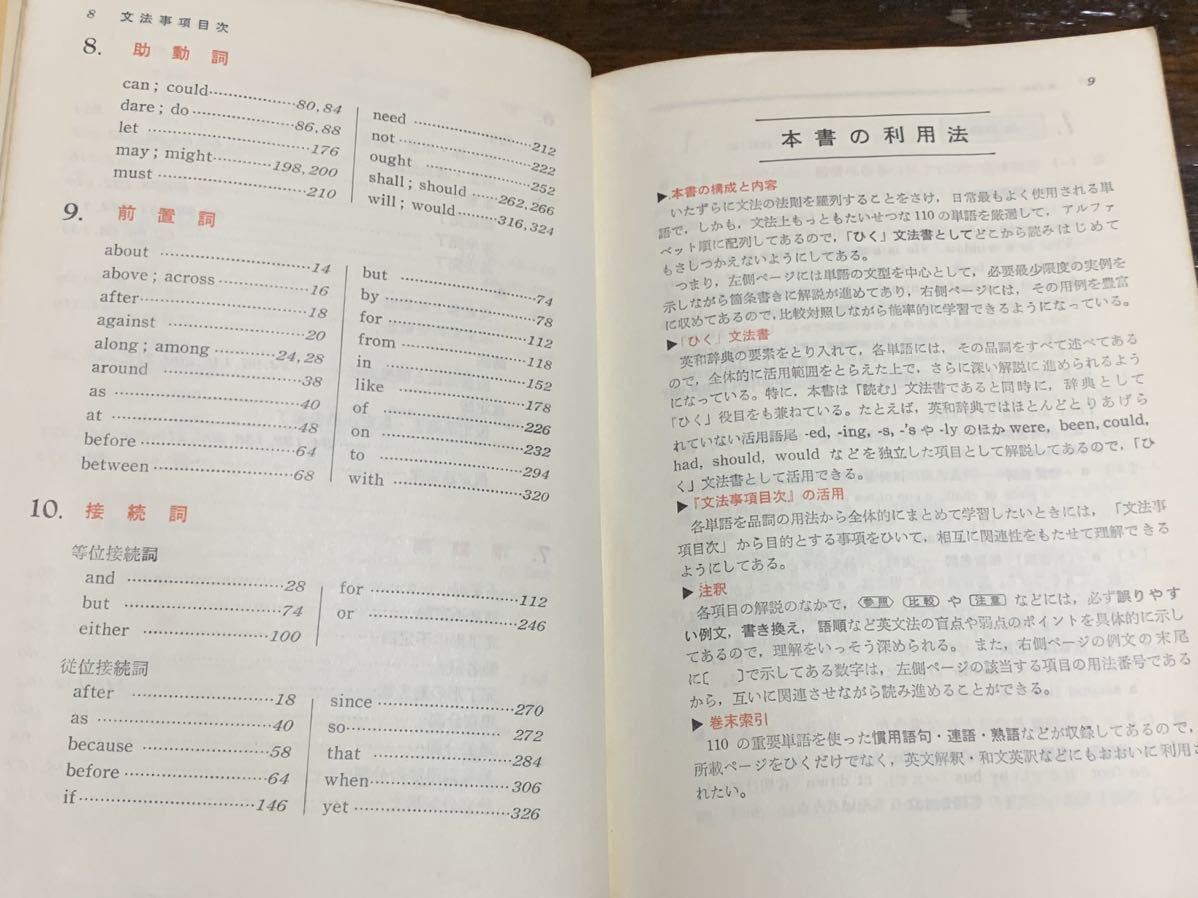 8 文法事項目次
8. 助動詞
can ; could……………80, 84
dare ; do……………86, 88
let……………176
may ; might……………198, 200
must……………210
need……………212
not……………222
ought……………252
shall ; should……………262, 266
will ; would……………316, 324
9. 前置詞
about……………14
above ; across……………16
after……………18
against……………20
along ; among……………24, 28
around……………38
as……………40
at……………48
before……………64
between……………68
but……………74
by……………78
for……………112
from……………118
in……………152
like……………178
of……………226
on……………232
to……………294
with……………320
10. 接続詞
等位接続詞
and……………28
but……………74
either……………100
for……………112
or……………246
従位接続詞
after……………18
as……………40
because……………58
before……………64
if……………146
since……………270
so……………272
that……………284
when……………306
yet……………326
9
本書の利用法
▶本書の構成と内容
いたずらに文法の法則を羅列することをさけ，日常最もよく使用される単
語で，しかも，文法上もっともたいせつな 110 の単語を厳選して，アルファ
ベット順に配列してあるので，「ひく」文法書としてどこから読みはじめて
もさしつかえないようにしてある。
つまり，左側ページには単語の文型を中心として，必要最少限度の実例を
示しながら箇条書きに解説が進めてあり，右側ページには，その用例を豊富
に収めてあるので，比較対照しながら能率的に学習できるようになっている。
▶「ひく」文法書
英和辞典の要素をとり入れて，各単語には，その品詞をすべて述べてある
ので，全体的に活用範囲をとらえた上で，さらに深い解説に進められるよう
になっている。特に，本書は「読む」文法書であると同時に，辞典として
「ひく」役目をも兼ねている。たとえば，英和辞典ではほとんどとりあげら
れていない活用語尾 -ed, -ing, -s, -'s や -ly のほか were, been, could,
had, should, would などを独立した項目として解説してあるので，「ひ
く」文法書として活用できる。
▶『文法事項目次』の活用
各単語を品詞の用法から全体的にまとめて学習したいときには，「文法事
項目次」から目的とする事項をひいて，相互に関連性をもたせて理解できる
ようにしてある。
▶注釈
各項目の解説のなかで，〈参照〉〈比較〉や［注意］などには，必ず誤りやす
い例文，書き換え，語順など英文法の盲点や弱点のポイントを具体的に示し
てあるので，理解をいっそう深められる。また，右側ページの例文の末尾
に〔　〕で示してある数字は，左側ページの該当する項目の用法番号である
から，互いに関連させながら読み進めることができる。
▶巻末索引
110 の重要単語を使った慣用語句・連語・熟語などが収録してあるので，
所載ページをひくだけでなく，英文解釈・和文英訳などにもおおいに利用さ
れたい。